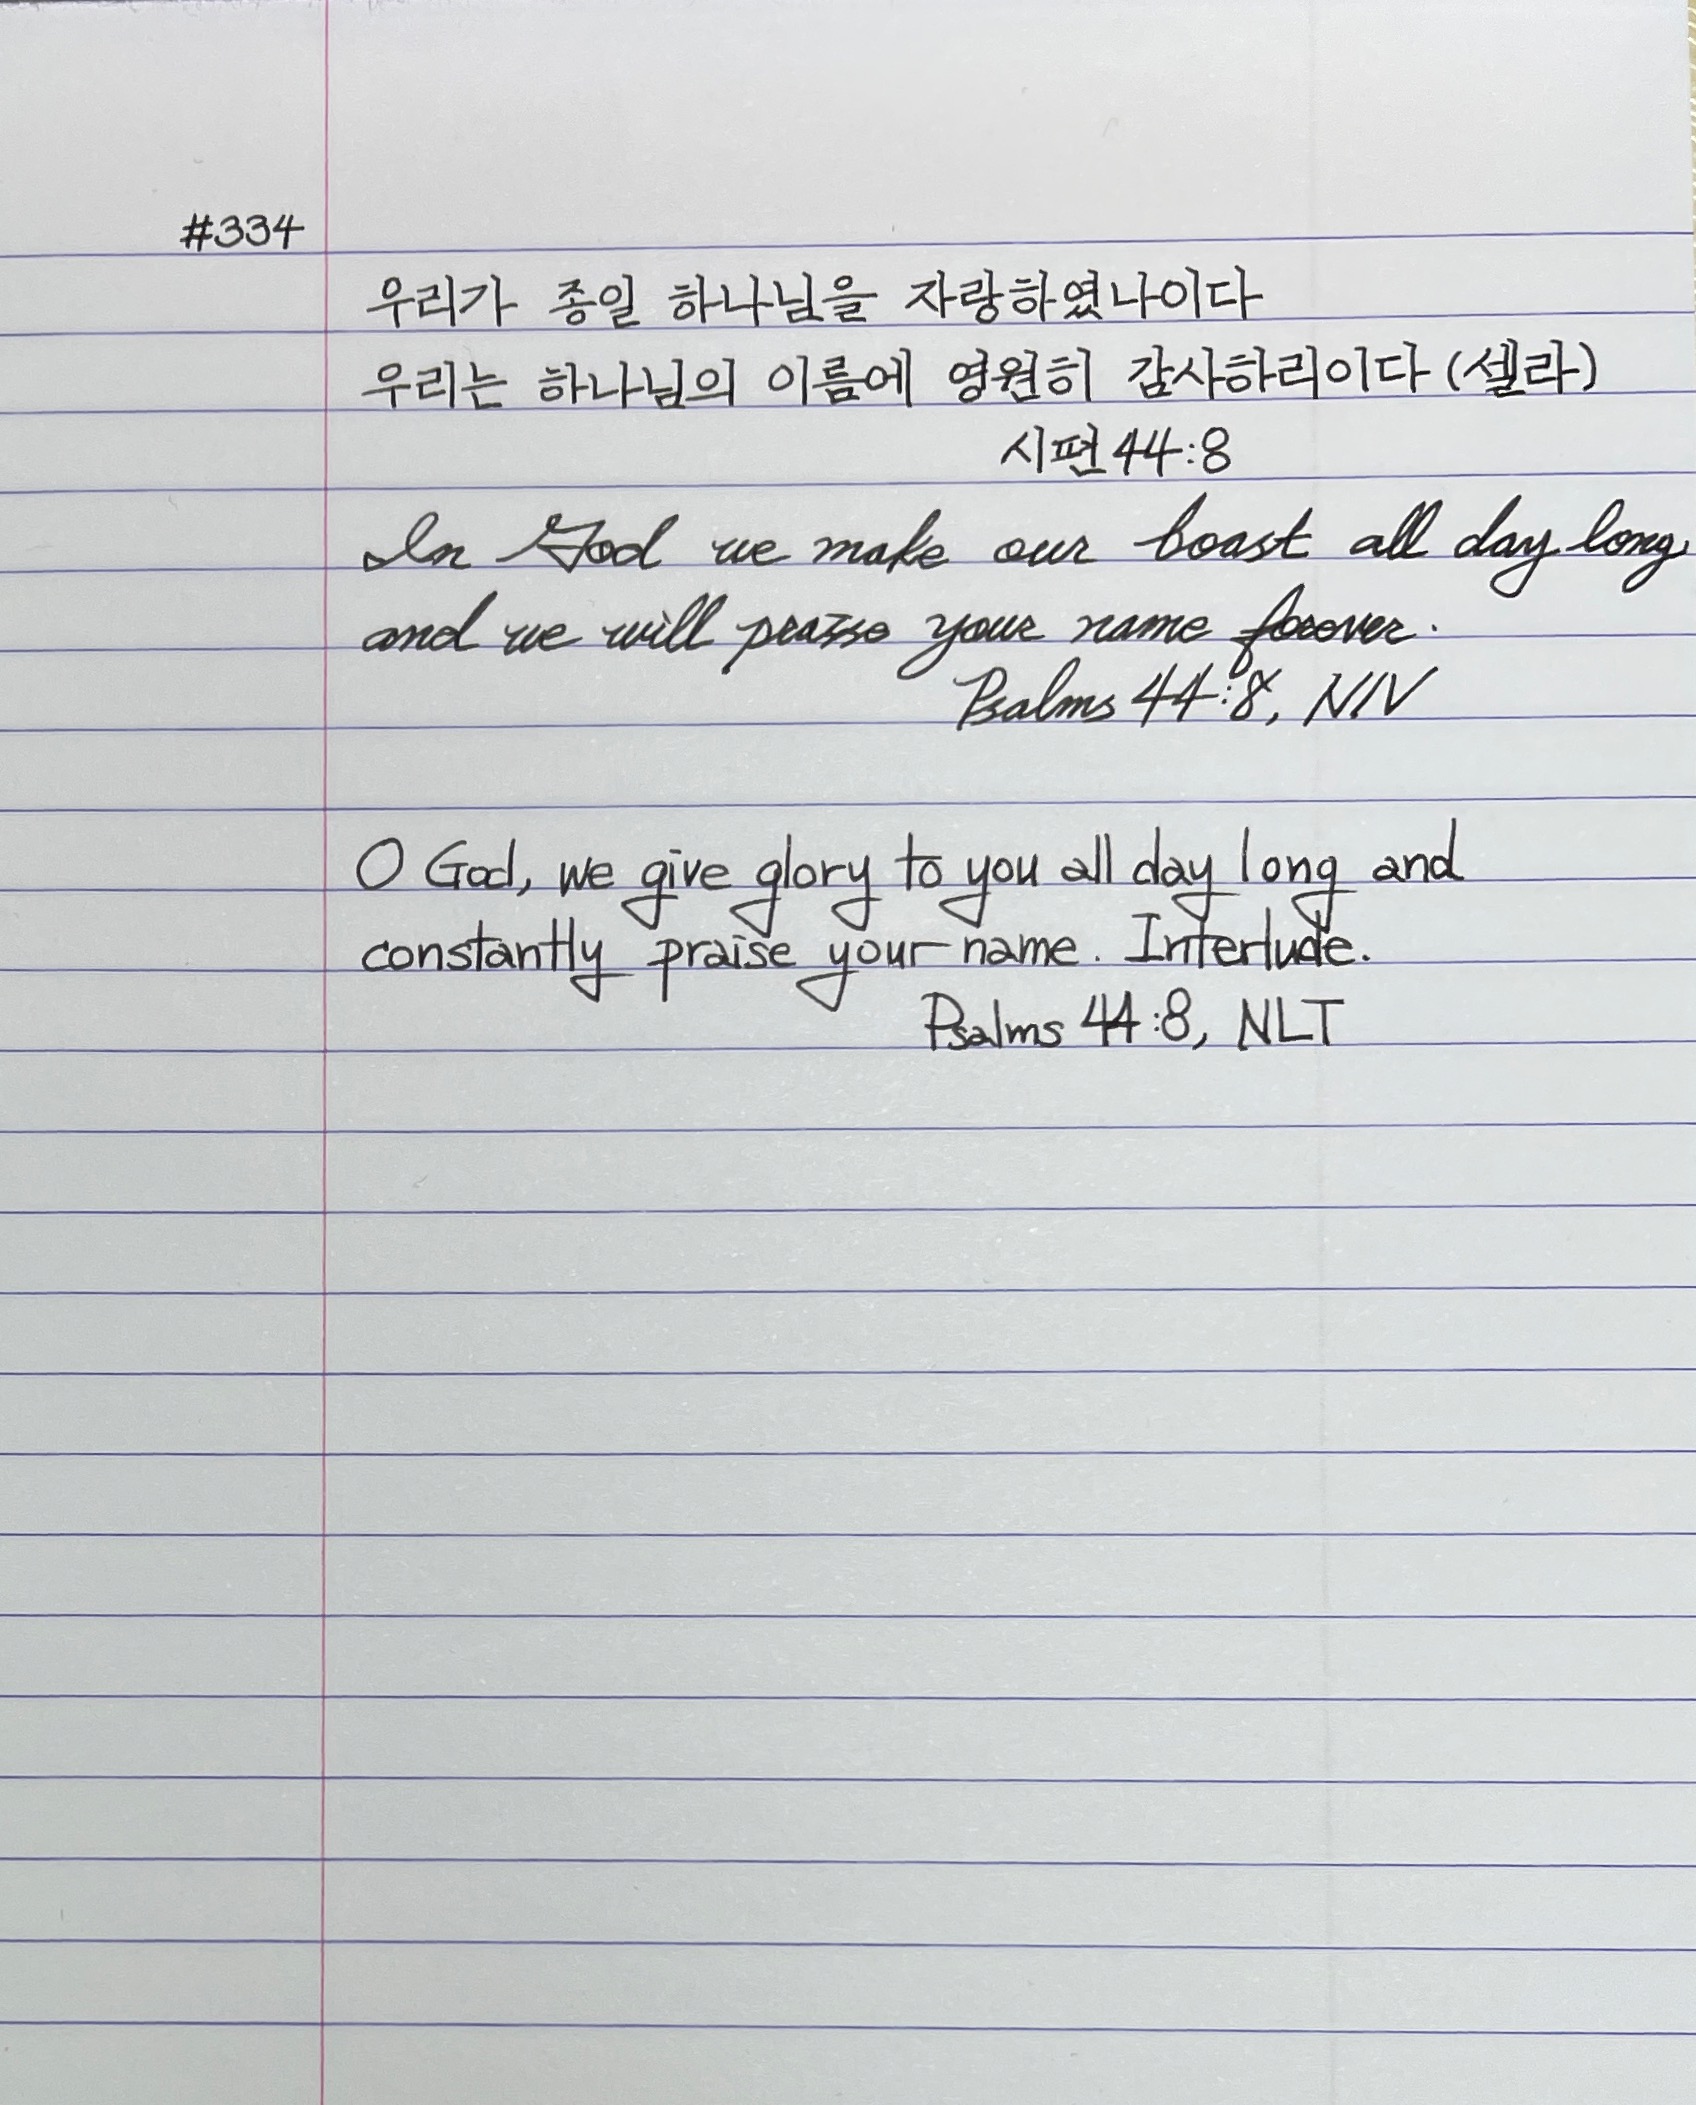 #334
우리가 종일 하나님을 자랑하였나이다
우리는 하나님의 이름에 영원히 감사하리이다 (셀라)
시편 44:8
In God we make our boast all day long,
and we will praise your name forever.
Psalms 44:8, NIV
O God, we give glory to you all day long and
constantly praise your name. Interlude.
Psalms 44:8, NLT